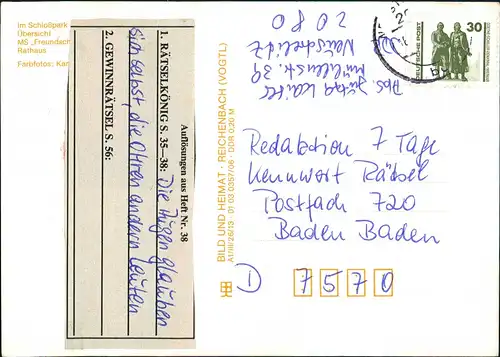 Im Schloßpark
Übersicht
MS „Freundsch
Rathaus
Farbfotos: Kar
Auflösungen aus Heft Nr. 38
1. RÄTSELKÖNIG S. 35–38: Die Augen glauben
sich selbst, die Ohren andern Leuten
2. GEWINNRÄTSEL S. 56:
BILD UND HEIMAT · REICHENBACH (VOGTL)
A1/III/26/13 · 01 03 0357/06 · DDR 0,20 M
Abs
Neustrelitz
2080
30
DEUTSCHE POST
Redaktion 7 Tage
Kennwort Rätsel
Postfach 720
Baden Baden
D 7570